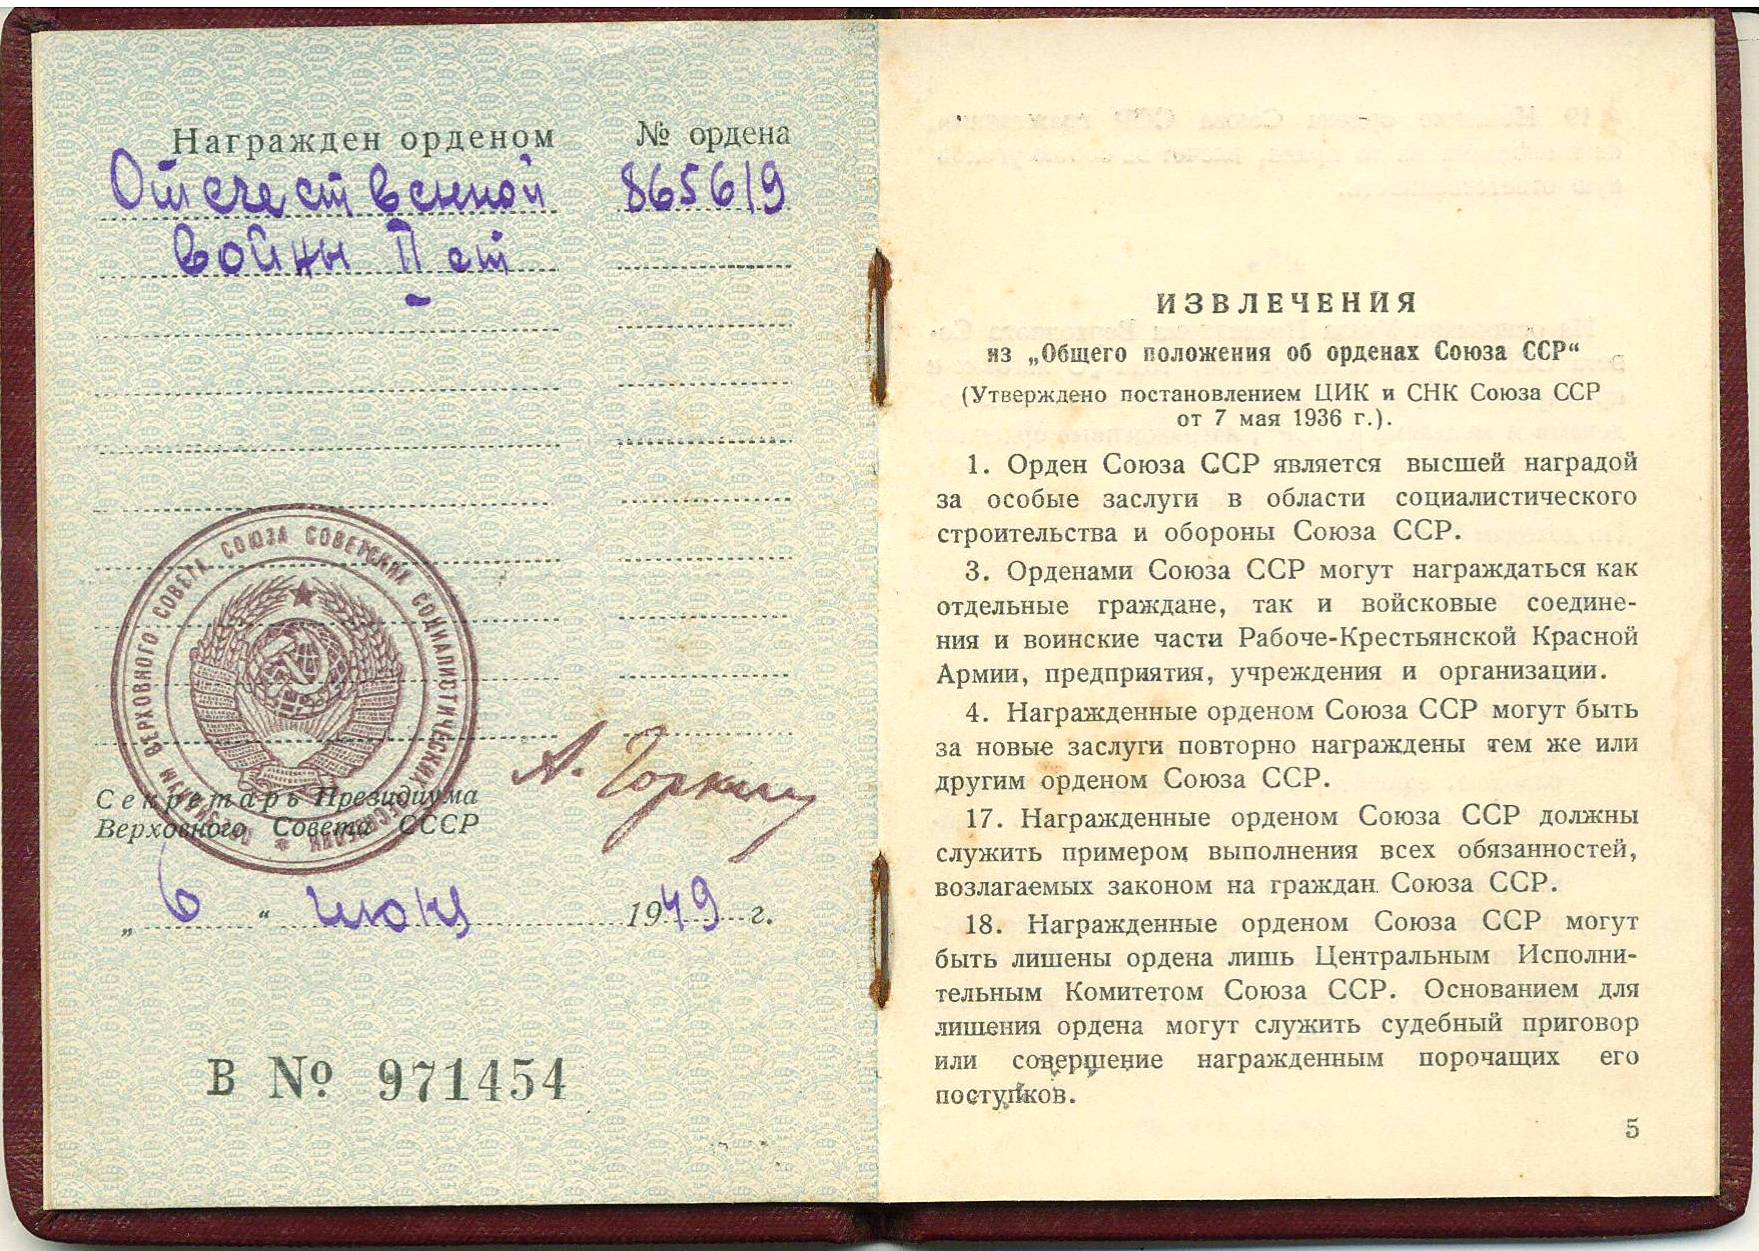 Награжден орденом № ордена
Отечественной 865619
войны II ст
ПРЕЗИДИУМ ВЕРХОВНОГО СОВЕТА СОЮЗА СОВЕТСКИХ СОЦИАЛИСТИЧЕСКИХ РЕСПУБЛИК
А. Горкин
Секретарь Президиума
Верховного Совета СССР
„ 6 “ июня 1949 г.
В № 971454
ИЗВЛЕЧЕНИЯ
из „Общего положения об орденах Союза ССР“
(Утверждено постановлением ЦИК и СНК Союза ССР
от 7 мая 1936 г.).
1. Орден Союза ССР является высшей наградой
за особые заслуги в области социалистического
строительства и обороны Союза ССР.
3. Орденами Союза ССР могут награждаться как
отдельные граждане, так и войсковые соедине-
ния и воинские части Рабоче-Крестьянской Красной
Армии, предприятия, учреждения и организации.
4. Награжденные орденом Союза ССР могут быть
за новые заслуги повторно награждены тем же или
другим орденом Союза ССР.
17. Награжденные орденом Союза ССР должны
служить примером выполнения всех обязанностей,
возлагаемых законом на граждан Союза ССР.
18. Награжденные орденом Союза ССР могут
быть лишены ордена лишь Центральным Исполни-
тельным Комитетом Союза ССР. Основанием для
лишения ордена могут служить судебный приговор
или совершение награжденным порочащих его
поступков.
5